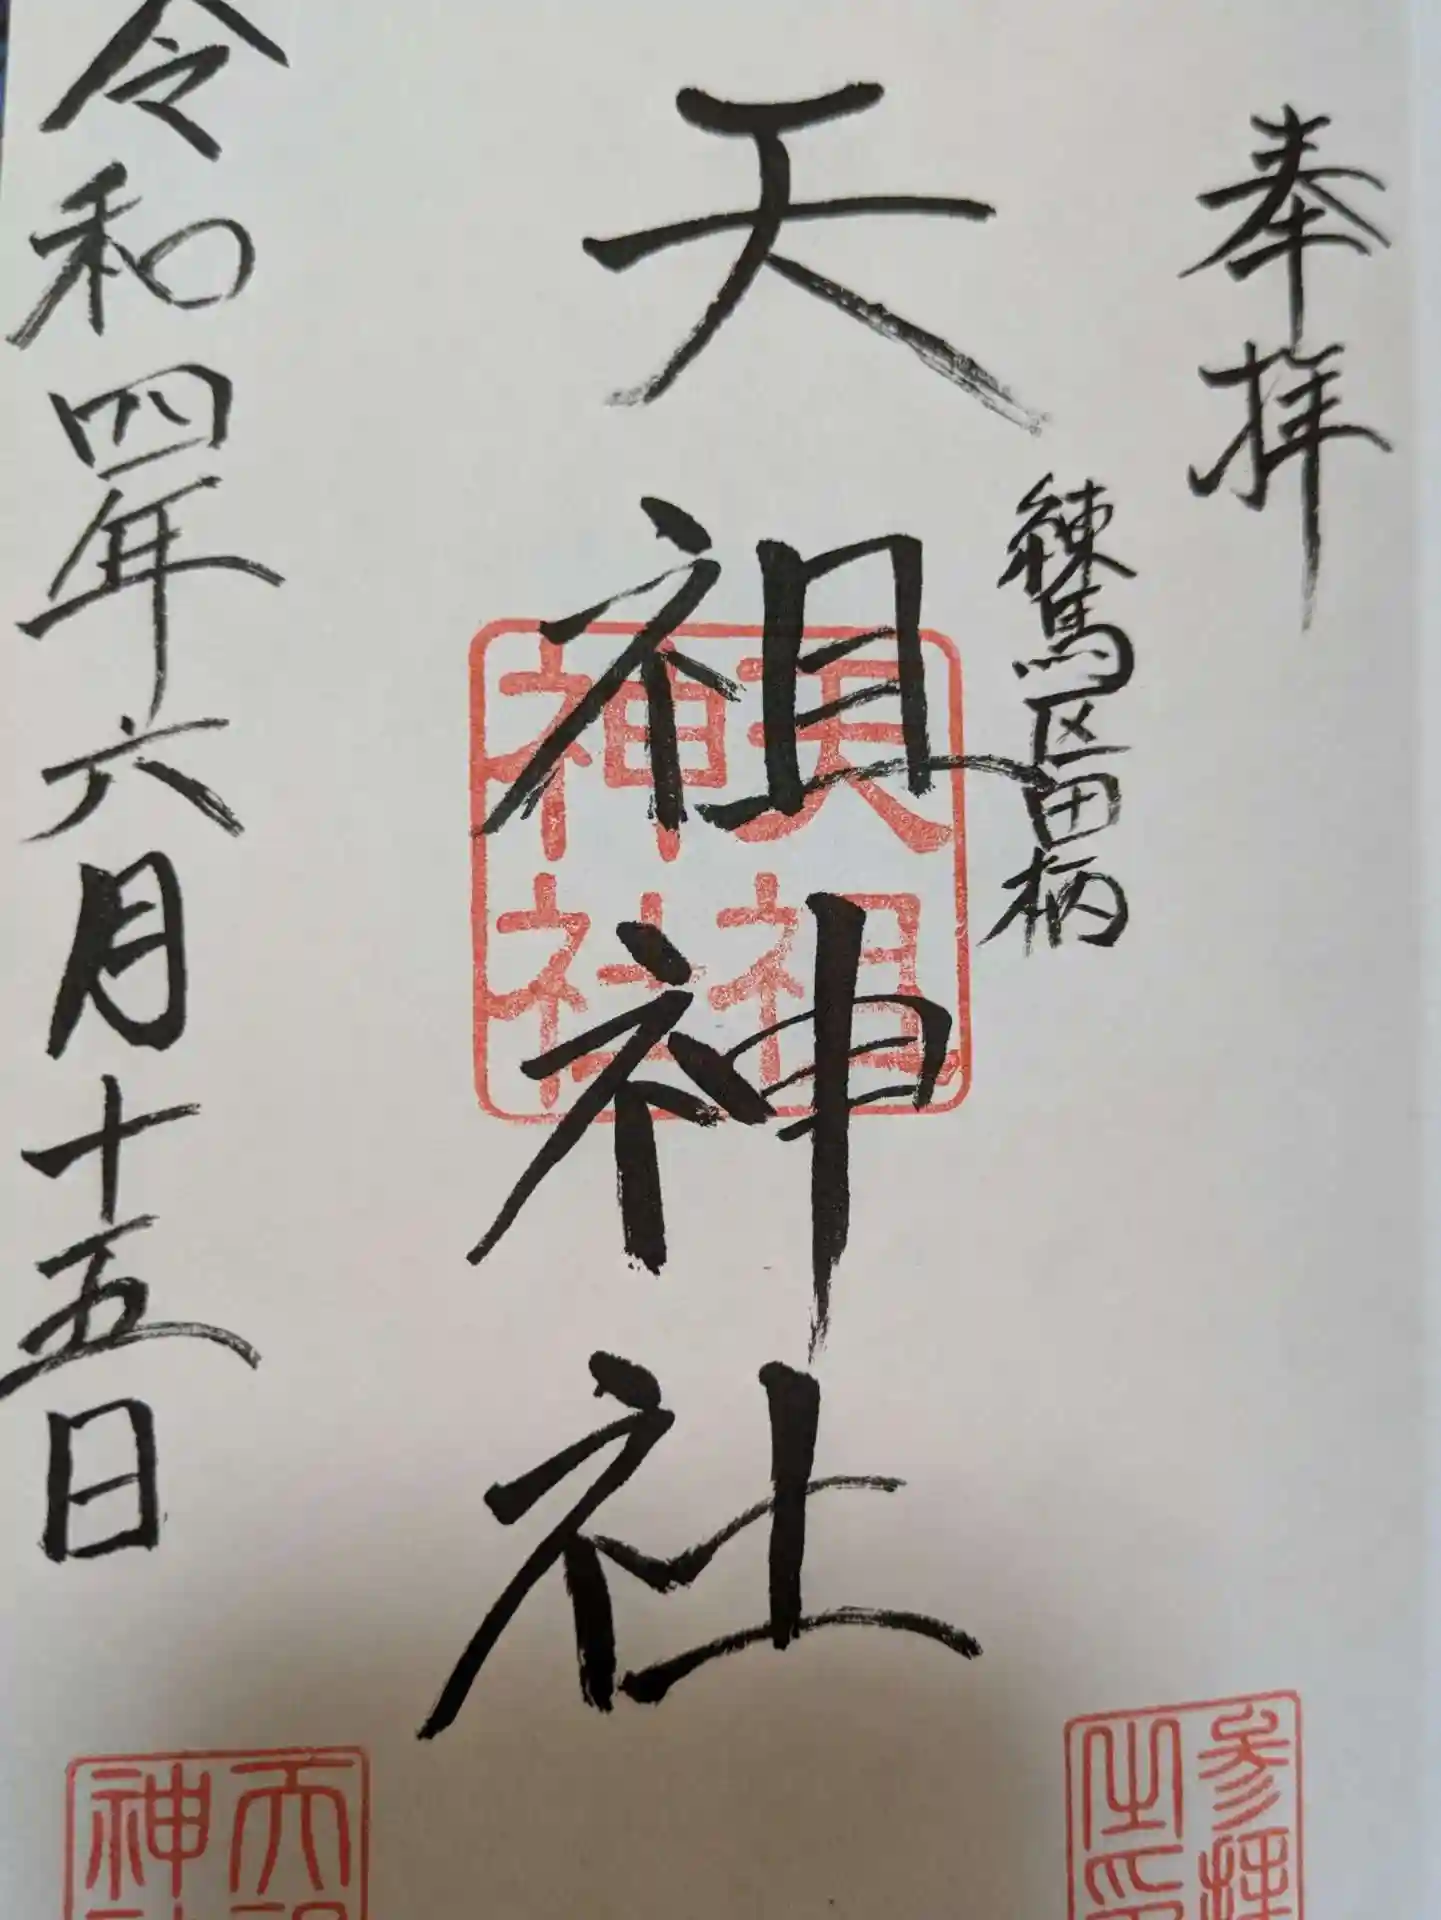 奉拝
練馬区田柄
天祖神社
天祖
神社
令和四年六月十五日
参拝
之印
天祖
神社